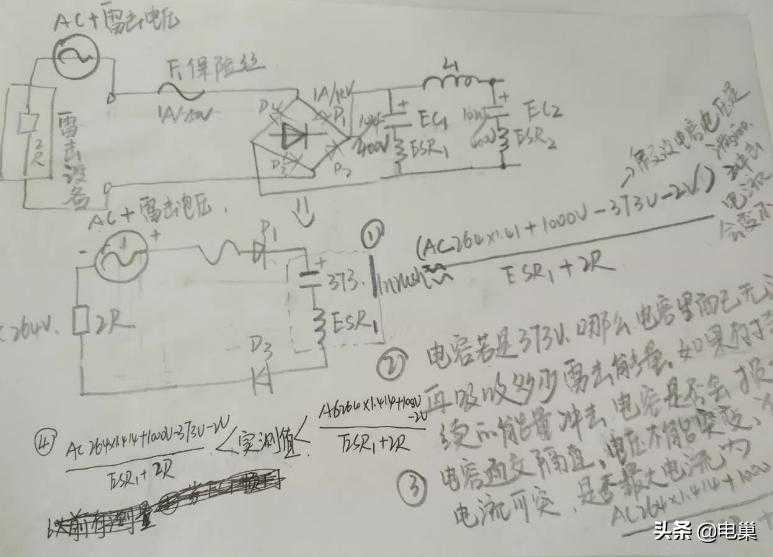 AC+雷击电压
F1保险丝
1A/
雷击设备
2R
D4
1A/
D1
D3
D2
400V
EC1
ESR1
L1
10uF
400V
EC2
ESR2
AC+雷击电压
D1
①
Inrush≈
(AC264×1.41+1000V-373V-2V)
ESR1+2R
电容电压是
冲击
电流
会变
264V.
2R
373.
ESR1
D3
② 电容若是373V.那么电容里面已无
再吸收多少雷击能量,如果
的能量冲击,电容是否会
③ 电容通交隔直,电压不能突变,
电流可突,是否最大电流为
AC264×1.414+1000
④
AC264×1.414+1000V-373V-2V
ESR1+2R
<实测值<
AC264×1.414+1000V
-2V
ESR1+2R
头条 @电巢